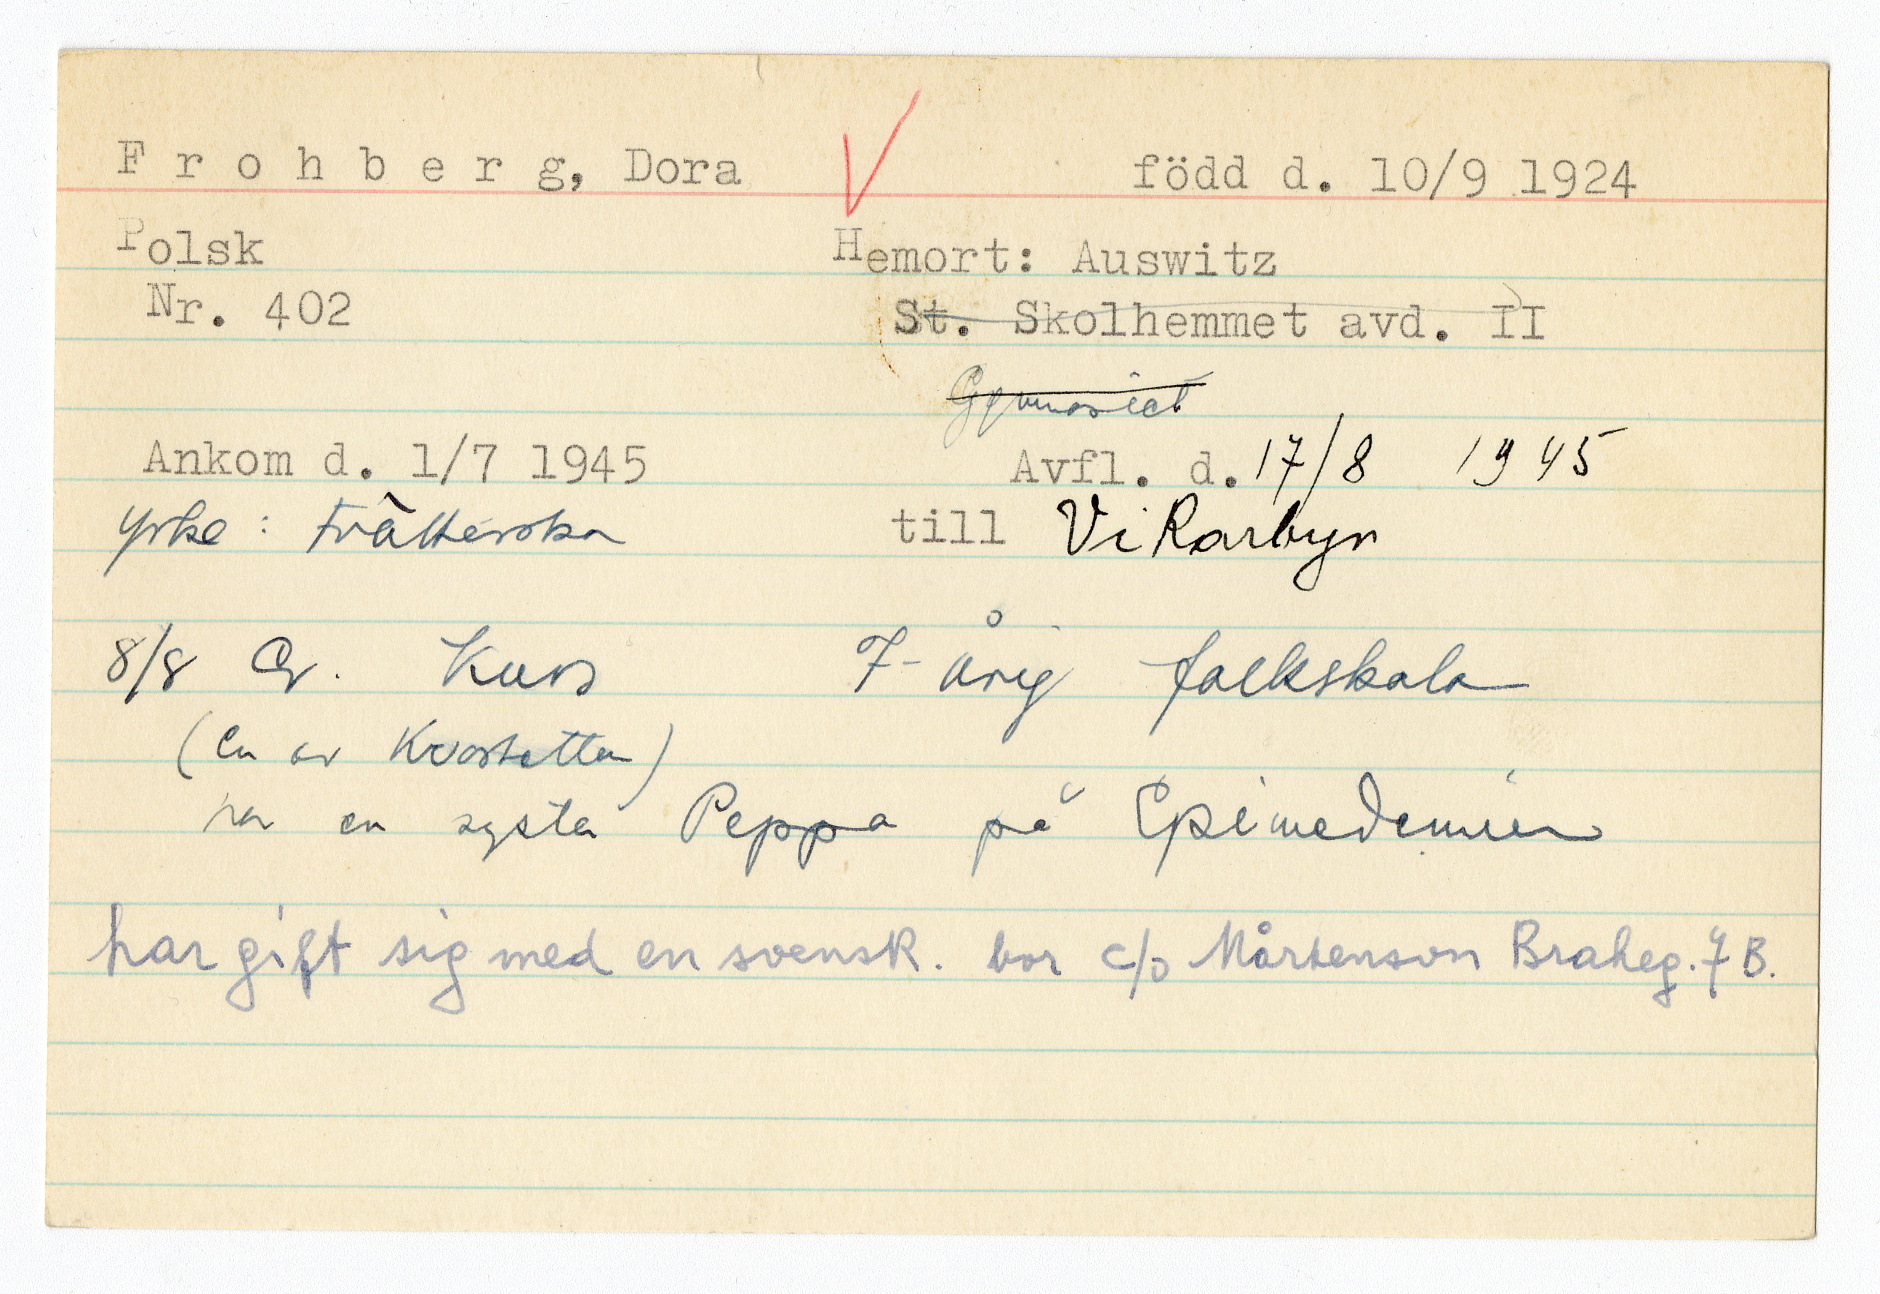 F r o h b e r g, Dora född d. 10/9 1924
Polsk Hemort: Auswitz
Nr. 402 St. Skolhemmet avd. II
Gymnasiet
Ankom d. 1/7 1945 Avfl. d. 17/8 1945
Yrke: tvätterska till Vikarbyn
8/8 Kurs 7-årig folkskola
(en av Kvartetten)
har en syster Peppa på
har gift sig med en svensk. bor c/o Mårtenson Braheg. 7 B.